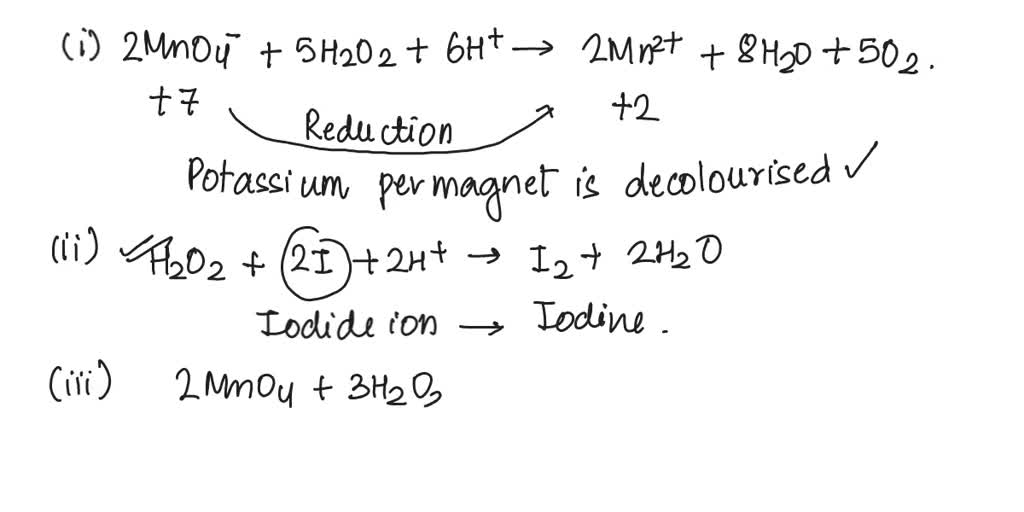 (i) 2MnO4⁻ + 5H2O2 + 6H⁺ → 2Mn²⁺ + 8H2O + 5O2.
+7 +2
Reduction
Potassium permagnet is decolourised ✓
(ii) H2O2 + 2I + 2H⁺ → I2 + 2H2O
Iodide ion → Iodine.
(iii) 2MnO4 + 3H2O2